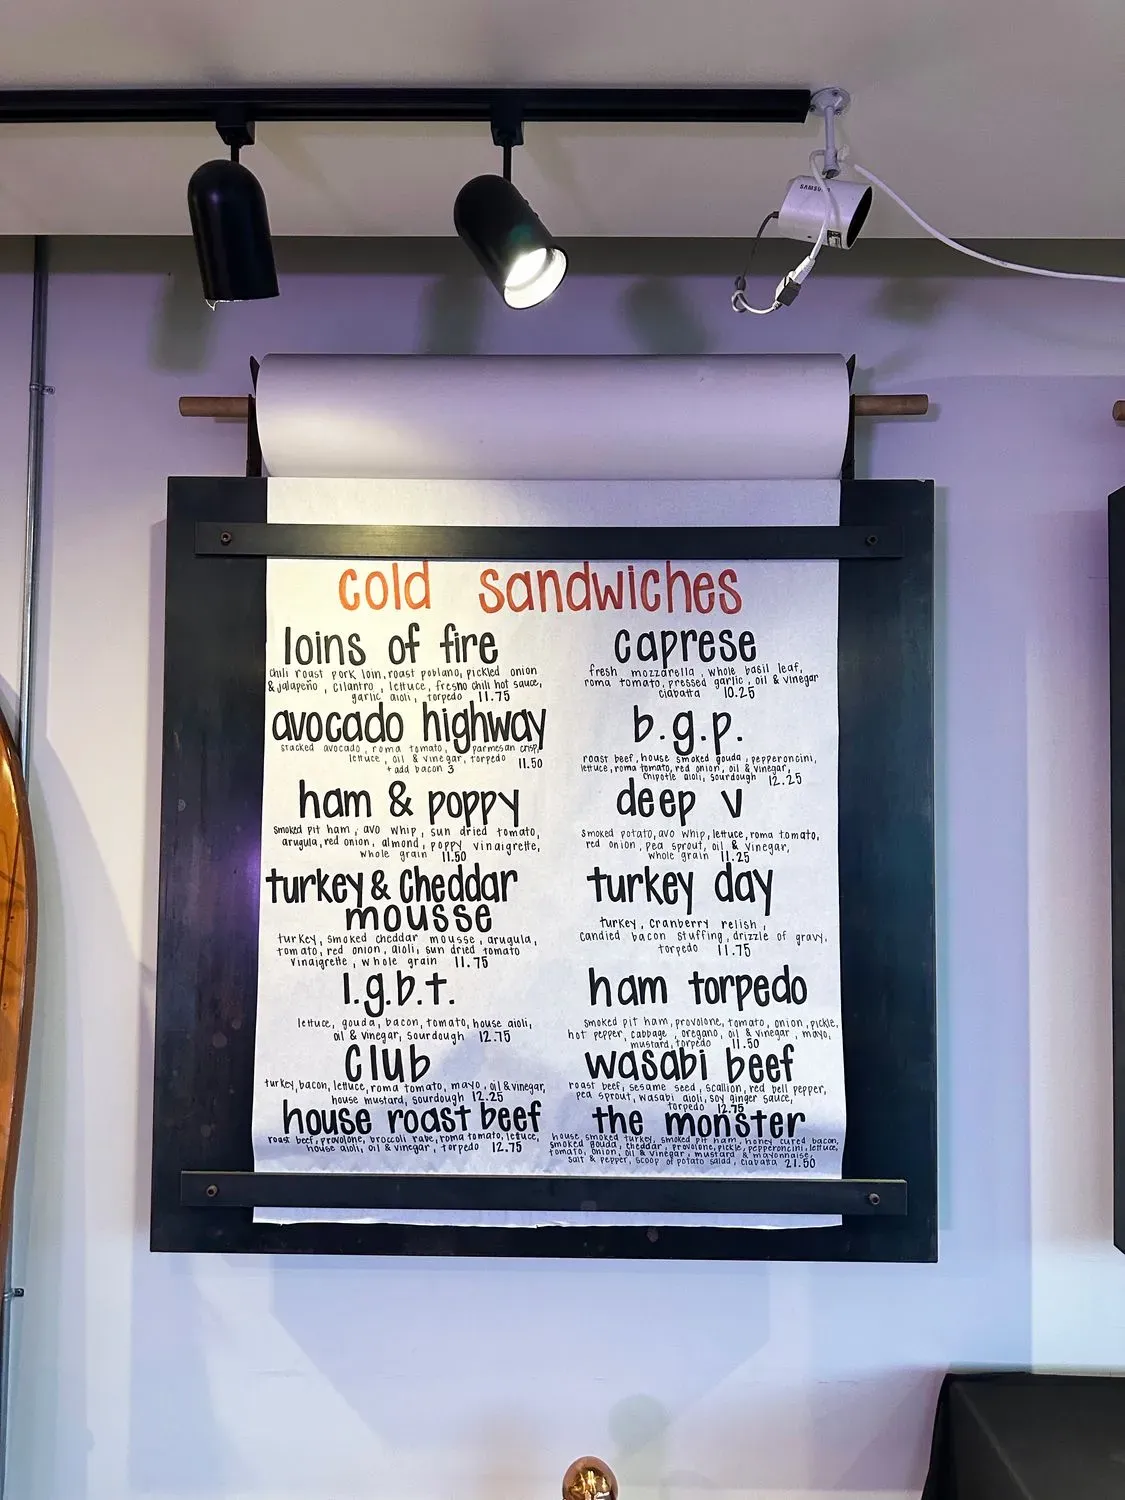 SAMSUNG
cold sandwiches
loins of fire
chili roast pork loin, roast poblano, pickled onion
& jalapeño, cilantro, lettuce, fresno chili hot sauce,
garlic aioli, torpedo 11.75
avocado highway
stacked avocado, roma tomato, parmesan crisp,
lettuce, oil & vinegar, torpedo 11.50
+ add bacon 3
ham & poppy
smoked pit ham, avo whip, sun dried tomato,
arugula, red onion, almond, poppy vinaigrette,
whole grain 11.50
turkey & cheddar
mousse
turkey, smoked cheddar mousse, arugula,
tomato, red onion, aioli, sun dried tomato
vinaigrette, whole grain 11.75
l.g.b.t.
lettuce, gouda, bacon, tomato, house aioli,
oil & vinegar, sourdough 12.75
club
turkey, bacon, lettuce, roma tomato, mayo, oil & vinegar,
house mustard, sourdough 12.25
house roast beef
roast beef, provolone, broccoli rabe, roma tomato, lettuce,
house aioli, oil & vinegar, torpedo 12.75
caprese
fresh mozzarella, whole basil leaf,
roma tomato, pressed garlic, oil & vinegar
ciabatta 10.25
b.g.p.
roast beef, house smoked gouda, pepperoncini,
lettuce, roma tomato, red onion, oil & vinegar,
chipotle aioli, sourdough 12.25
deep v
smoked potato, avo whip, lettuce, roma tomato,
red onion, pea sprout, oil & vinegar,
whole grain 11.25
turkey day
turkey, cranberry relish,
candied bacon stuffing, drizzle of gravy,
torpedo 11.75
ham torpedo
smoked pit ham, provolone, tomato, onion, pickle,
hot pepper, cabbage, oregano, oil & vinegar, mayo,
mustard, torpedo 11.50
wasabi beef
roast beef, sesame seed, scallion, red bell pepper,
pea sprout, wasabi aioli, soy ginger sauce,
torpedo 12.75
the monster
house smoked turkey, smoked pit ham, honey cured bacon,
smoked gouda, cheddar, provolone, pickle, pepperoncini, lettuce,
tomato, onion, oil & vinegar, mustard & mayonnaise,
salt & pepper, scoop of potato salad, ciabatta 21.50